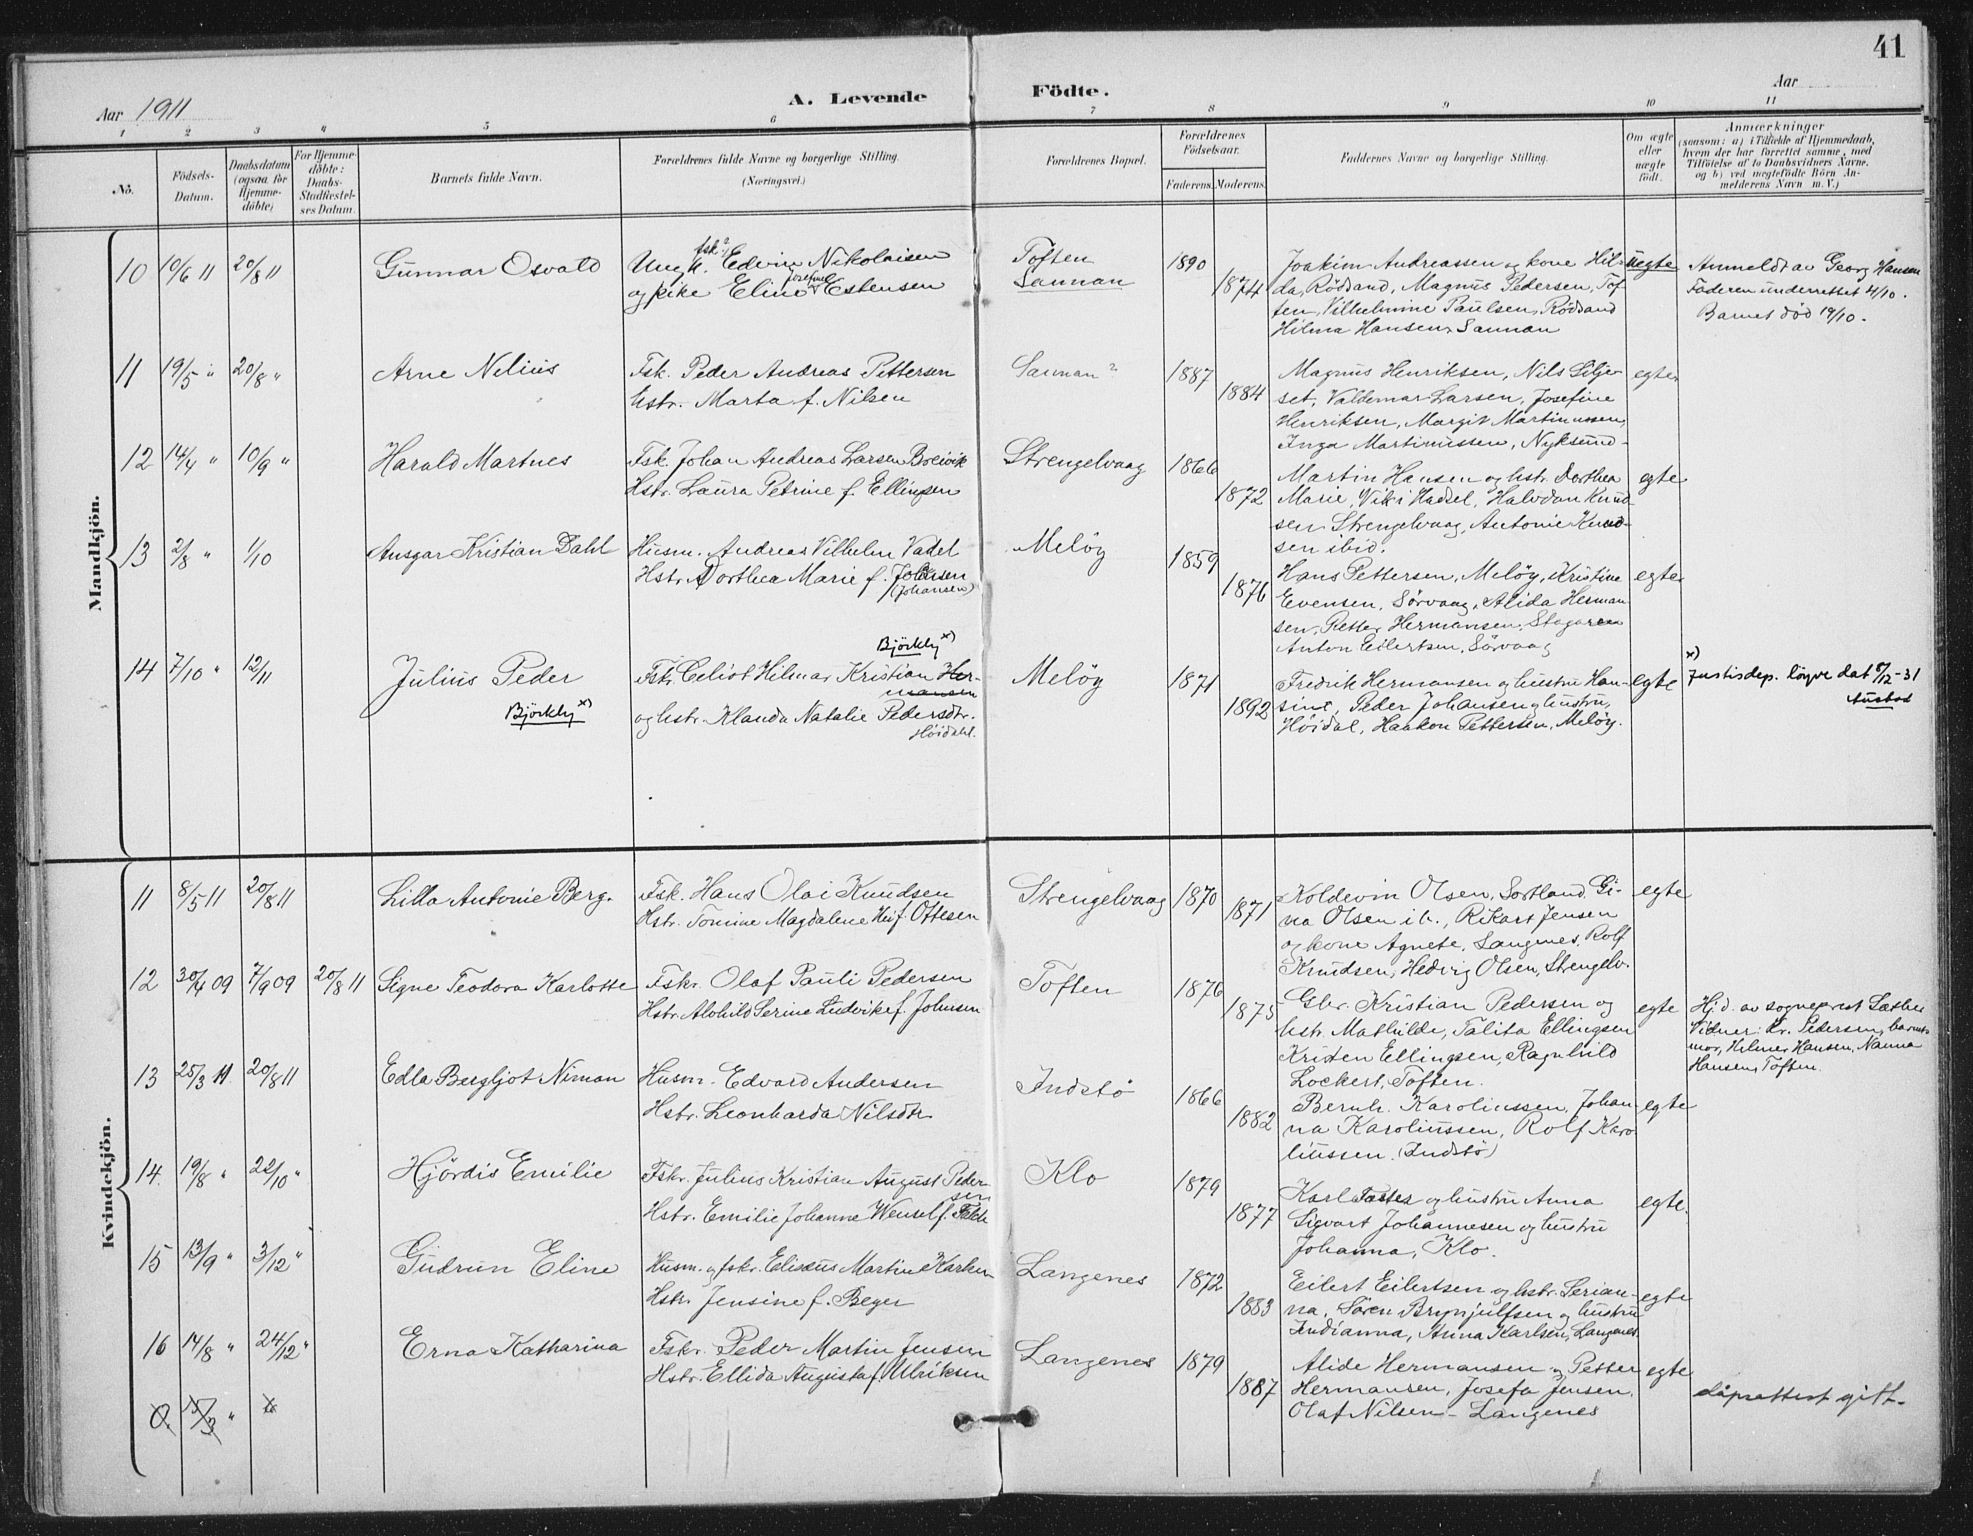 41
Aar 1911
A. Levende Födte.
Aar
1 2 3 4 5 6 7 8 9 10 11
No.
Födsels-Datum.
Daabsdatum (ogsaa for Hjemme-döbte)
For Hjemme-döbte: Daabs-Stadfæstel-ses Datum.
Barnets fulde Navn.
Forældrenes fulde Navne og borgerlige Stilling. (Næringsvei.)
Forældrenes Bopæl.
Forældrenes Födselsaar.
Faderens. Moderens.
Faddernes Navne og borgerlige Stilling.
Om ægte eller uægte födt.
Anmærkninger
(saasom: a) i Tilfælde af Hjemmedaab, hvem der har forrettet samme, med Tilföielse af to Daabsvidners Navne, og b) ved uægtefödte Börn Anmelderens Navn m. V.)
Mandkjön.
10 10/6 11 20/8 11 Gunnar Osvald
Ungk. fsk. Edvin Nikolaisen
og pike Eline Estensen
Toften
Sannan
1890
1874
Joakim Andreassen og kone Hil-
da, Rödsand, Magnus Pedersen, Tof-
ten, Vilhelmine Paulsen, Rödsand
Hilma Hansen, Sannan
uegte
Anmeldt av Georg Hansen
Faderen underrettet 4/10.
Barnet död 19/10.
11 19/5 " 20/8 " Arne Nelius
Fsk. Peder Andreas Pettersen
hstr. Marta f. Nilsen
Sannan
1887
1884
Magnus Henriksen, Nils Silje-
set, Valdemar Larsen, Josefine
Henriksen, Margit Martinussen,
Inga Martinussen, Nyksund
egte
12 14/4 " 10/9 " Harald Martnes
Fsk. Johan Andreas Larsen Breivik
Hstr. Laura Petrine f. Ellingsen
Strengelvaag
1866
1872
Martin Hansen og hstr. Dorthea
Marie, Vik i Hadsel, Halvdan Knud-
sen Strengelvaag, Antonie Knud-
sen ibid.
egte
13 2/8 " 1/10 Ansgar Kristian Dahl
Husm. Andreas Vilhelm Vadel
Hstr. Dorthea Marie f.
(Johansen)
Melöy
1859
1876
Hans Pettersen, Melöy, Kristine
Evensen, Sörvaag, Alida Herman
sen, Petter Hermansen, Stagaren
Anton Eilertsen, Sörvaag
egte
14 7/10 " 12/11 Julius Peder
Björkly x)
Björkly x)
Fskr. Celiot Hilmar Kristian Her-
mansen
og hstr. Klanda Natalie Pedersdtr.
Höidahl.
Melöy
1871
1892
Fredrik Hermansen og hustru Han-
sine, Peder Johansen og hustru,
Höidal, Haakon Pettersen, Melöy.
egte
x)
Justisdep. löyve dat 8/12-31
Kvindekjön.
11 8/5 11 20/8 11 Lilla Antonie Berg.
Fsk. Hans Olai Knudsen
Hstr. Tomine Magdalene f. Ottesen
Strengelvaag
1870
1871
Koldevin Olsen, Sortland, Gi-
na Olsen ib., Rikart Jensen
og kone Agnete, Langenes, Rolf
Knudsen, Hedvig Olsen, Strengelv.
egte
12 30/4 09 7/9 09 20/8 11 Signe Teodora Karlotte
Fskr. Olaf Pauli Pedersen
Hstr. Alvhild Serine Ludvikke f. Johnsen
Toften
1876
1875
Gbr. Kristian Pedersen og
hstr. Mathilde, Talita Ellingsen
Kristen Ellingsen, Ragnhild
Lockert, Toften.
egte
Hj.d. av sogneprest Sæther
Vidner: Kr. Pedersen, barnets
mor, Hilmer Hansen, Nanna
Hansen, Toften.
13 25/3 11 20/8 11 Edla Bergljot Niman
Husm. Edvard Andersen
Hstr. Leonharda Nilsdtr
Indstö
1866
1882
Bernh. Karoliussen, Johan-
na Karoliussen, Rolf Karo-
liussen. (Indstö)
egte
14. 19/8 " 22/10 " Hjördis Emilie
Fskr. Julius Kristian August Peder-
sen
Hstr. Emilie Johanne Wensel f. Falch
Klo
1879
1877
Karl og hustru Anna
Sigvart Johannesen og hustru
Johanna, Klo.
egte.
15 13/9 " 3/12 " Gudrun Eline
Husm. og fskr. Eliseus Martin
Hstr. Jensine f. Beyer
Langenes
1872
1883
Eilert Eilertsen og hstr. Serian-
na, Sören Brynjulfsen og hustru
Indianna, Anna Karlsen, Langenes
egte
16 14/8 " 24/12 " Erna Katharina
Fskr. Peder Martin Jensen
Hstr. Ellida Augusta f. Ulriksen
Langenes
1879
1887
Alide Hermansen og Petter
Hermansen, Josefa Jensen,
Olaf Nilsen – Langenes
egte
15/3 "